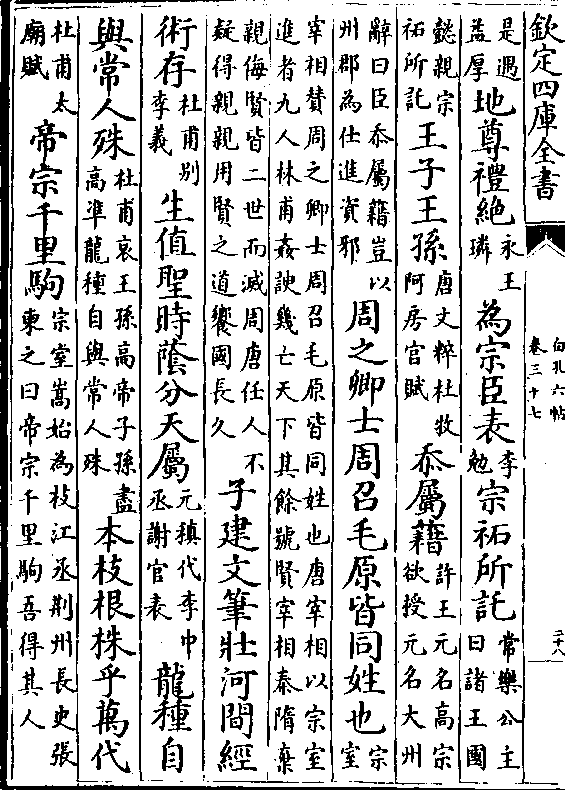 欽定四庫全書
白孔六帖
卷三十七
二十八
是遇益厚地尊禮絕永王璘為宗臣表李勉宗祏所託常樂公主曰諸王國
懿親宗祏所託王子王孫唐文粹杜牧阿房官賦忝屬籍許王元名高宗欲授元名大州
辭曰臣忝屬籍豈以州郡為仕進資邪周之卿士周召毛原皆同姓也宗室
宰相賛周之卿士周召毛原皆同姓也唐宰相以宗室進者九人林甫姦諛幾亡天下其餘號賢宰相秦隋棄
親侮賢皆二世而滅周唐任人不疑得親親用賢之道饗國長久子建文筆壯河間經
術存杜甫别李義生值聖時蔭分天屬元稹代李中丞謝官表龍種自
與常人殊杜甫哀王孫高帝子孫盡高準龍種自與常人殊本枝根株乎萬代
杜甫太廟賦帝宗千里駒宗室嵩始為枝江丞荆州長史張柬之曰帝宗千里駒吾得其人